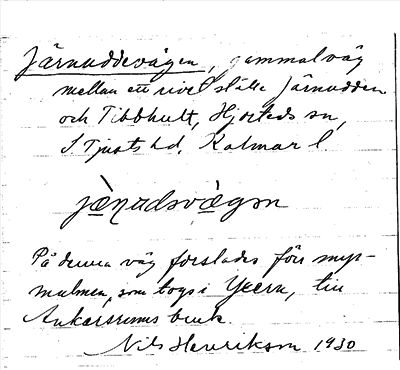 Järnuddevägen, gammal väg
mellan ett ställe Järnudden
och Tibbhult, Hjorteds sn,
S Tjusts hd, Kalmar l.
jæ̀nudsvægən
På denna väg forslades förr myr-
malmen, som togs i Yxern, till
Ankarsrums bruk.
Nils Henrikson 1930